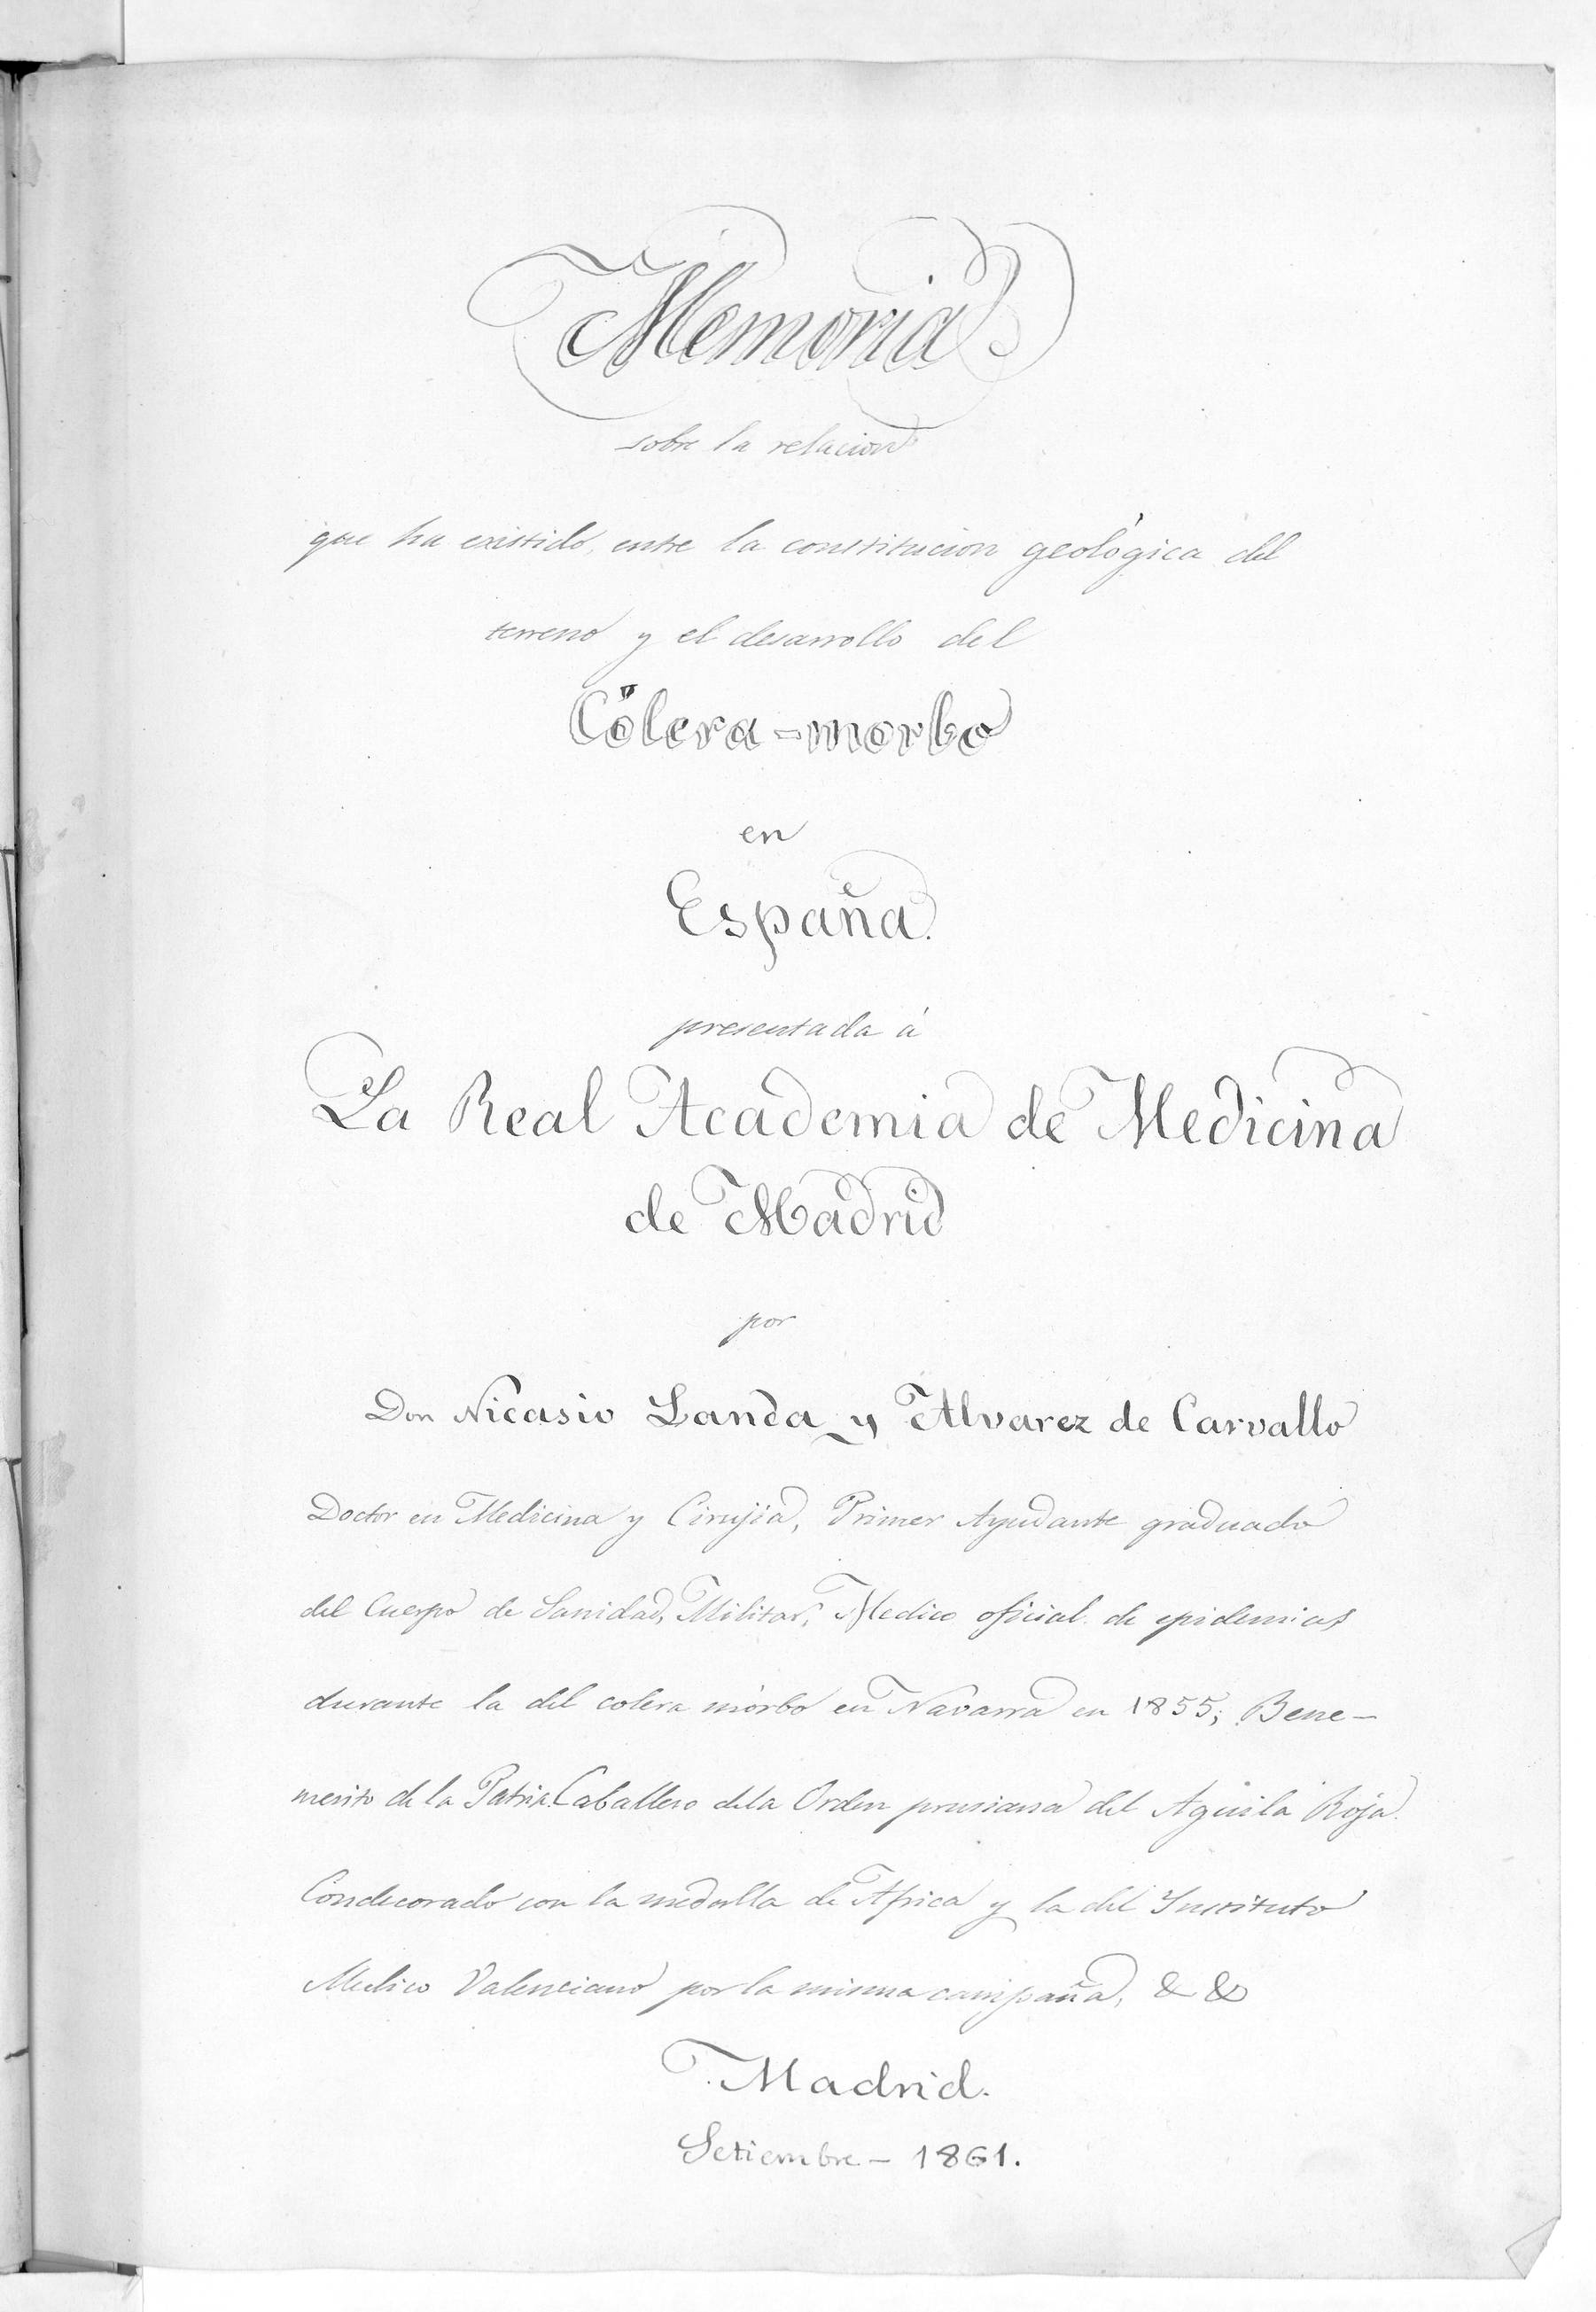 Memoria
sobre la relacion
que ha existido, entre la constitucion geológica del
terreno y el desarrollo del
Cólera-morbo
en
España.
presentada á
La Real Academia de Medicina
de Madrid
por
Don Nicasio Landa y Alvarez de Carvallo
Doctor en Medicina y Cirujía, Primer Ayudante graduado
del Cuerpo de Sanidad, Militar, Medico oficial de epidemias
durante la del colera mórbo en Navarra en 1855; Bene-
merito de la Patria. Caballero de la Orden prusiana del Aguila Roja.
Condecorado con la medalla de Africa y la del Instituto
Medico Valenciano por la misma campaña, & &
Madrid.
Setiembre - 1861.